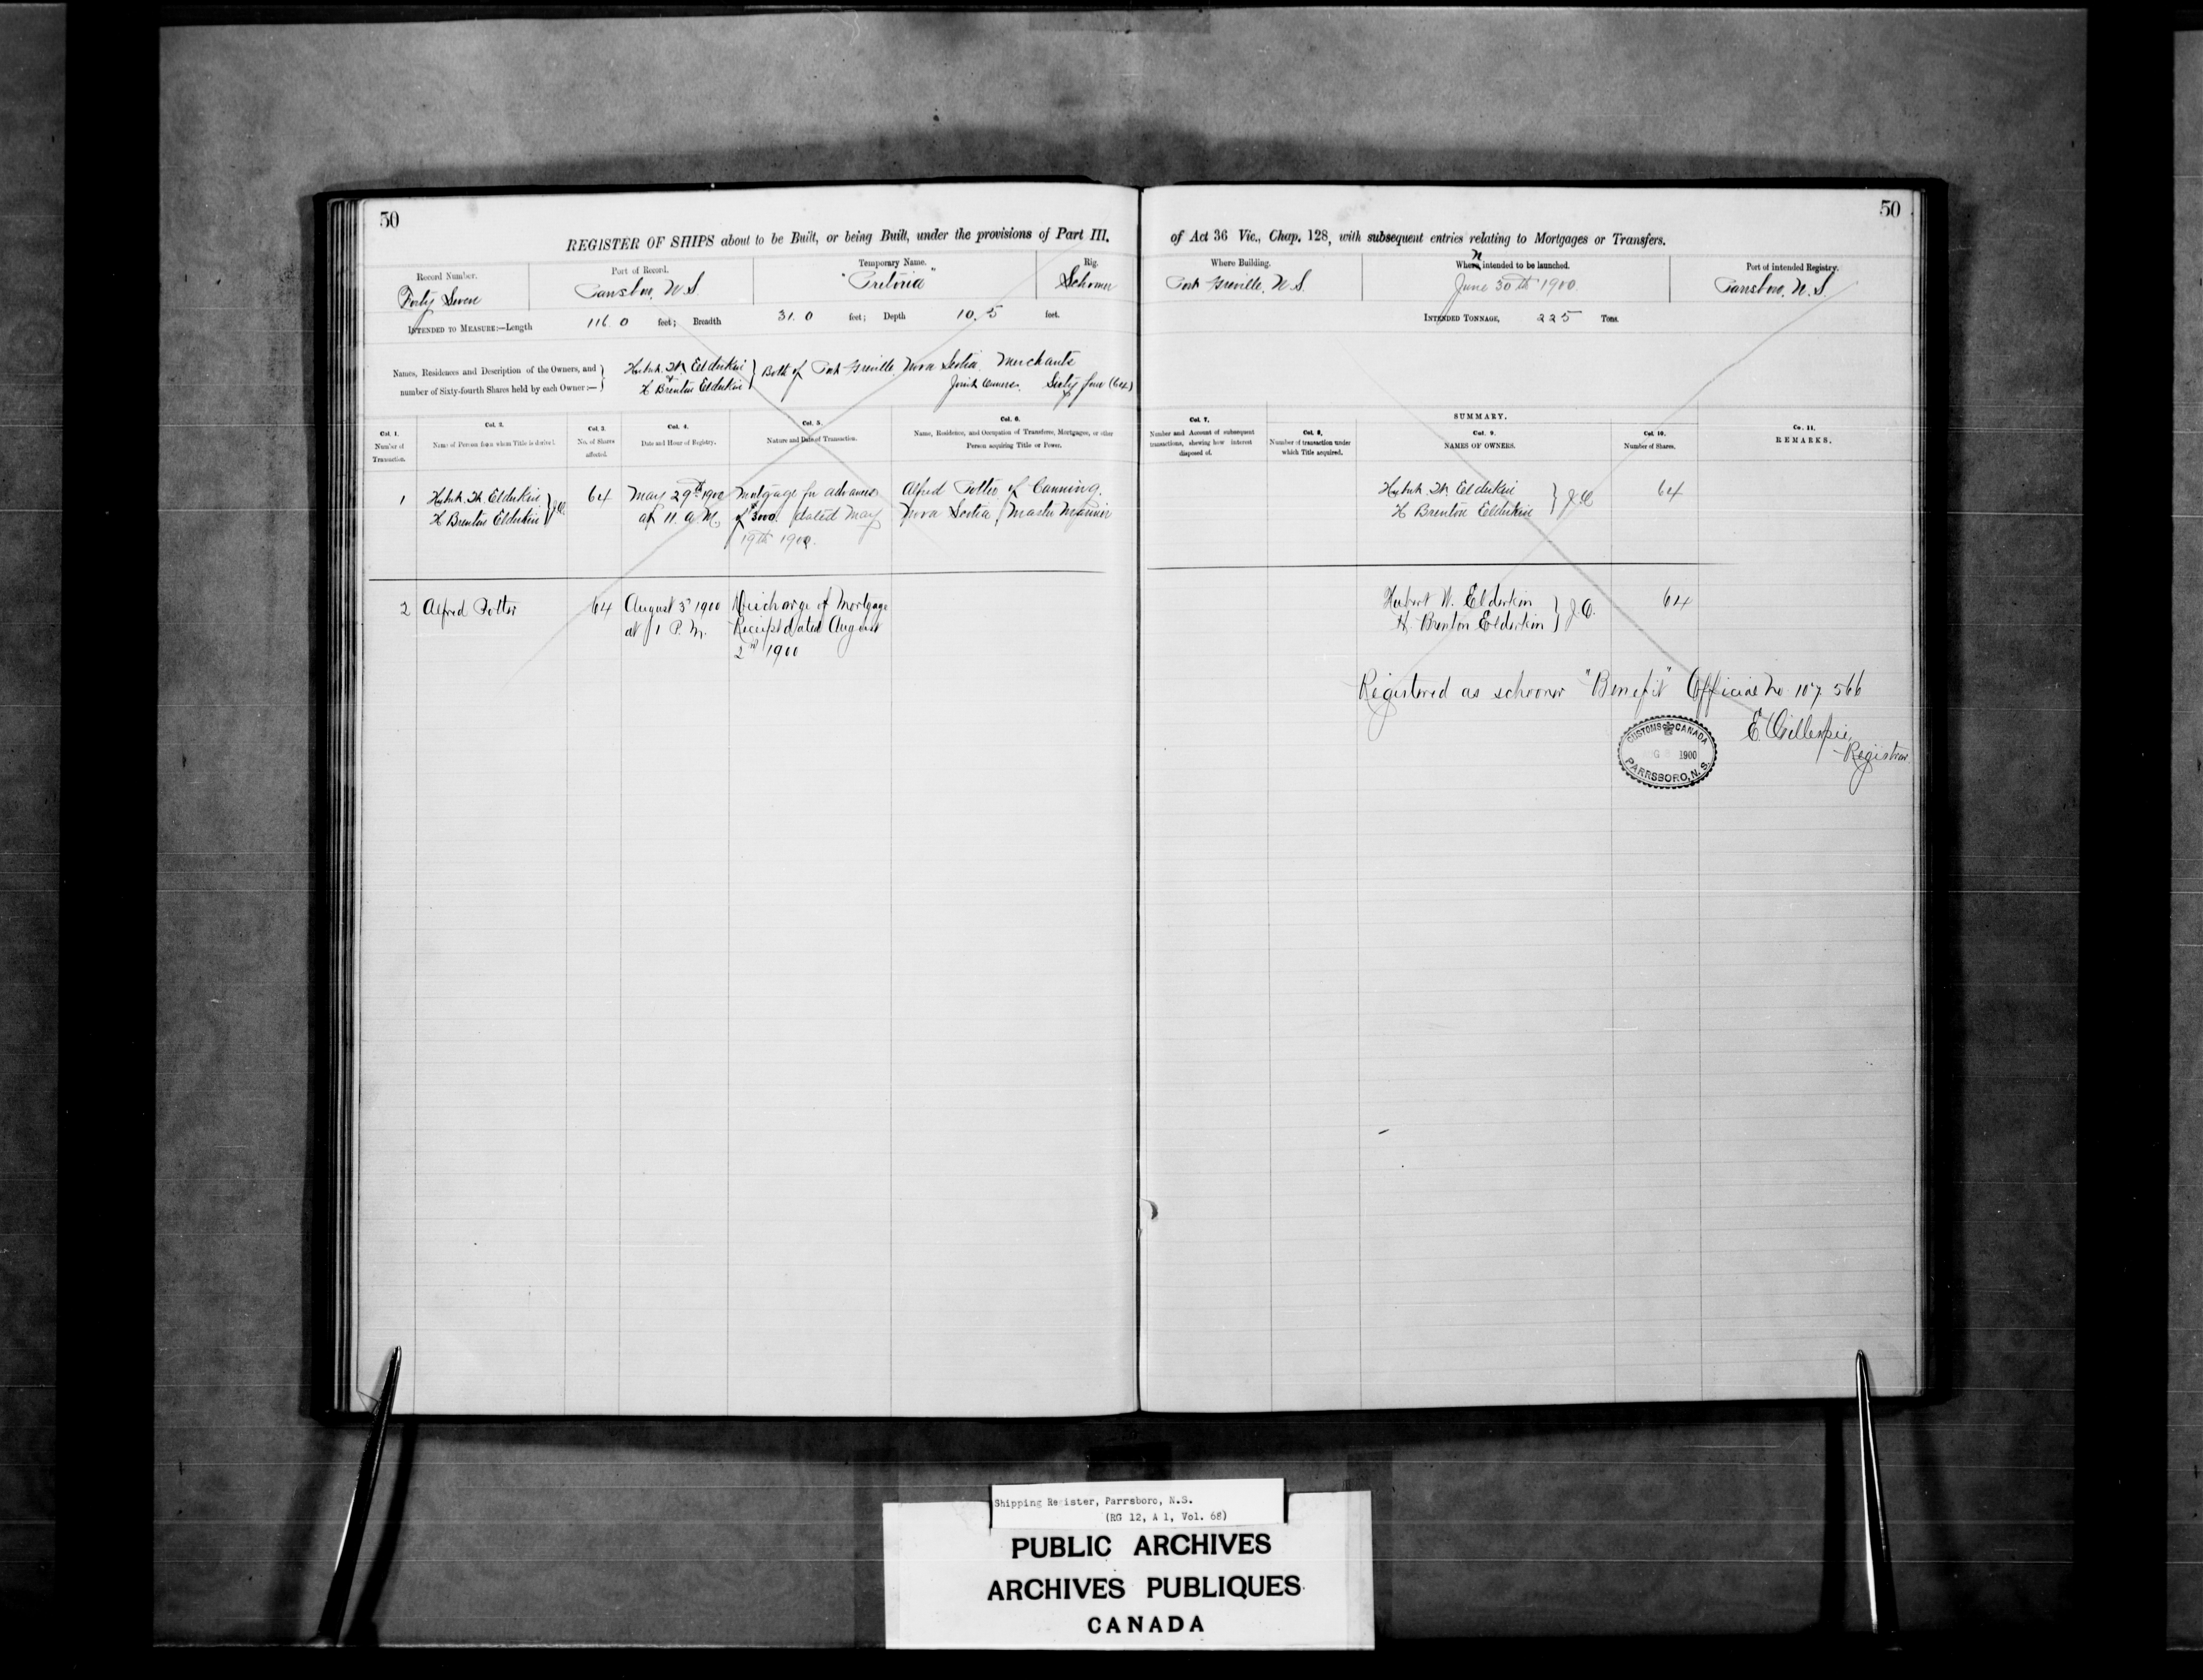 50
REGISTER OF SHIPS about to be Built, or being Built, under the provisions of Part III.
Record Number.
Forty Seven
Port of Record.
Parrsboro, N.S.
Temporary Name.
"Pretoria"
Rig.
Schooner
INTENDED TO MEASURE:—Length 116.0 feet; Breadth 31.0 feet; Depth 10.5 feet.
Names, Residences and Description of the Owners, and
number of Sixty-fourth Shares held by each Owner:—
Hubert W. Elderkin
& H Brenton Elderkin
Both of Port Greville, Nova Scotia, Merchants
Joint Owners. Sixty four (64)
Col. 1.
Number of
Transaction.
Col. 2.
Name of Person from whom Title is derived.
Col. 3.
No. of Shares
affected.
Col. 4.
Date and Hour of Registry.
Col. 5.
Nature and Date of Transaction.
Col. 6.
Name, Residence, and Occupation of Transferee, Mortgagee, or other
Person acquiring Title or Power.
1
Hubert W. Elderkin
H Brenton Elderkin
J.O.
64
May 29th 1900
at 11. a.M.
Mortgage for advances
of $3000. dated May
19th 1900.
Alfred Potter of Canning,
Nova Scotia, Master Mariner
2
Alfred Potter
64
August 3rd 1900
at 1 P.M.
Discharge of Mortgage
Receipt dated August
2nd 1900
50
of Act 36 Vic., Chap. 128, with subsequent entries relating to Mortgages or Transfers.
Where Building.
Port Greville, N.S.
When intended to be launched.
June 30th 1900
Port of intended Registry.
Parrsboro, N.S.
INTENDED TONNAGE, 225 Tons.
Col. 7.
Number and Account of subsequent
transactions, shewing how interest
disposed of.
Col. 8.
Number of transaction under
which Title acquired.
SUMMARY.
Col. 9.
NAMES OF OWNERS.
Col. 10.
Number of Shares.
Co. 11.
REMARKS.
Hubert W. Elderkin
H Brenton Elderkin
J.O.
64
Hubert W. Elderkin
H. Brenton Elderkin
J.O.
64
Registered as schooner "Benefit" Official No 107 566
E. Gillespie
Registrar
CUSTOMS CANADA
1900
PARRSBORO, N.S.
Shipping Register, Parrsboro, N.S.
(RG 12, A 1, Vol. 68)
PUBLIC ARCHIVES
ARCHIVES PUBLIQUES
CANADA